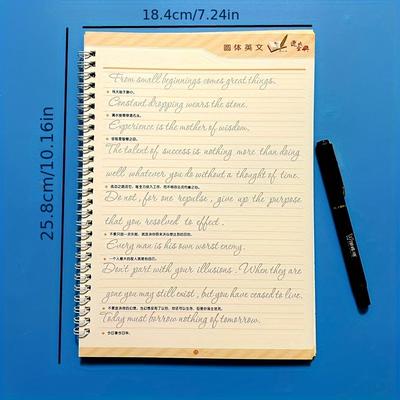 18.4cm/7.24in
25.8cm/10.16in
圆体英文
From small beginnings comes great things.
伟大始于渺小。
Constant dropping wears the stone.
滴水能穿石。
Experience is the mother of wisdom.
The talent of success is nothing more than doing
well whatever you do without a thought of time.
Do not, for one repulse, give up the purpose
that you resolved to effect.
不要只因一次失败，就放弃你原来决心想达到的目的。
Every man is his own worst enemy.
一个人最大的敌人就是他自己。
Don't part with your illusions. When they are
gone you may still exist, but you have ceased to live.
Today must borrow nothing of tomorrow.
今日事今日毕。